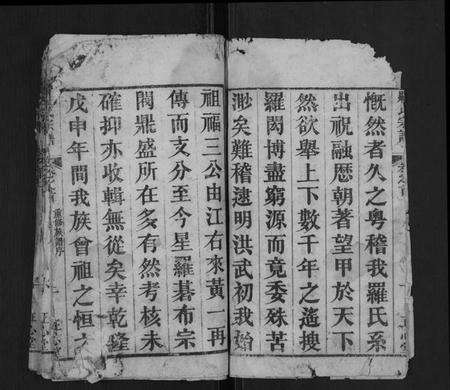 慨然者久之粵稽我羅氏系
出祝融歷朝著望甲於天下
然欲舉上下數千年之遙搜
羅閎博盡窮源而竟委殊苦
渺矣難稽逮明洪武初我始
祖福三公由江右來黃一再
傳而支分至今星羅碁布宗
閥鼎盛所在多有然考核未
確抑亦收輯無從矣幸乾隆
戊申年間我族曾祖之恒